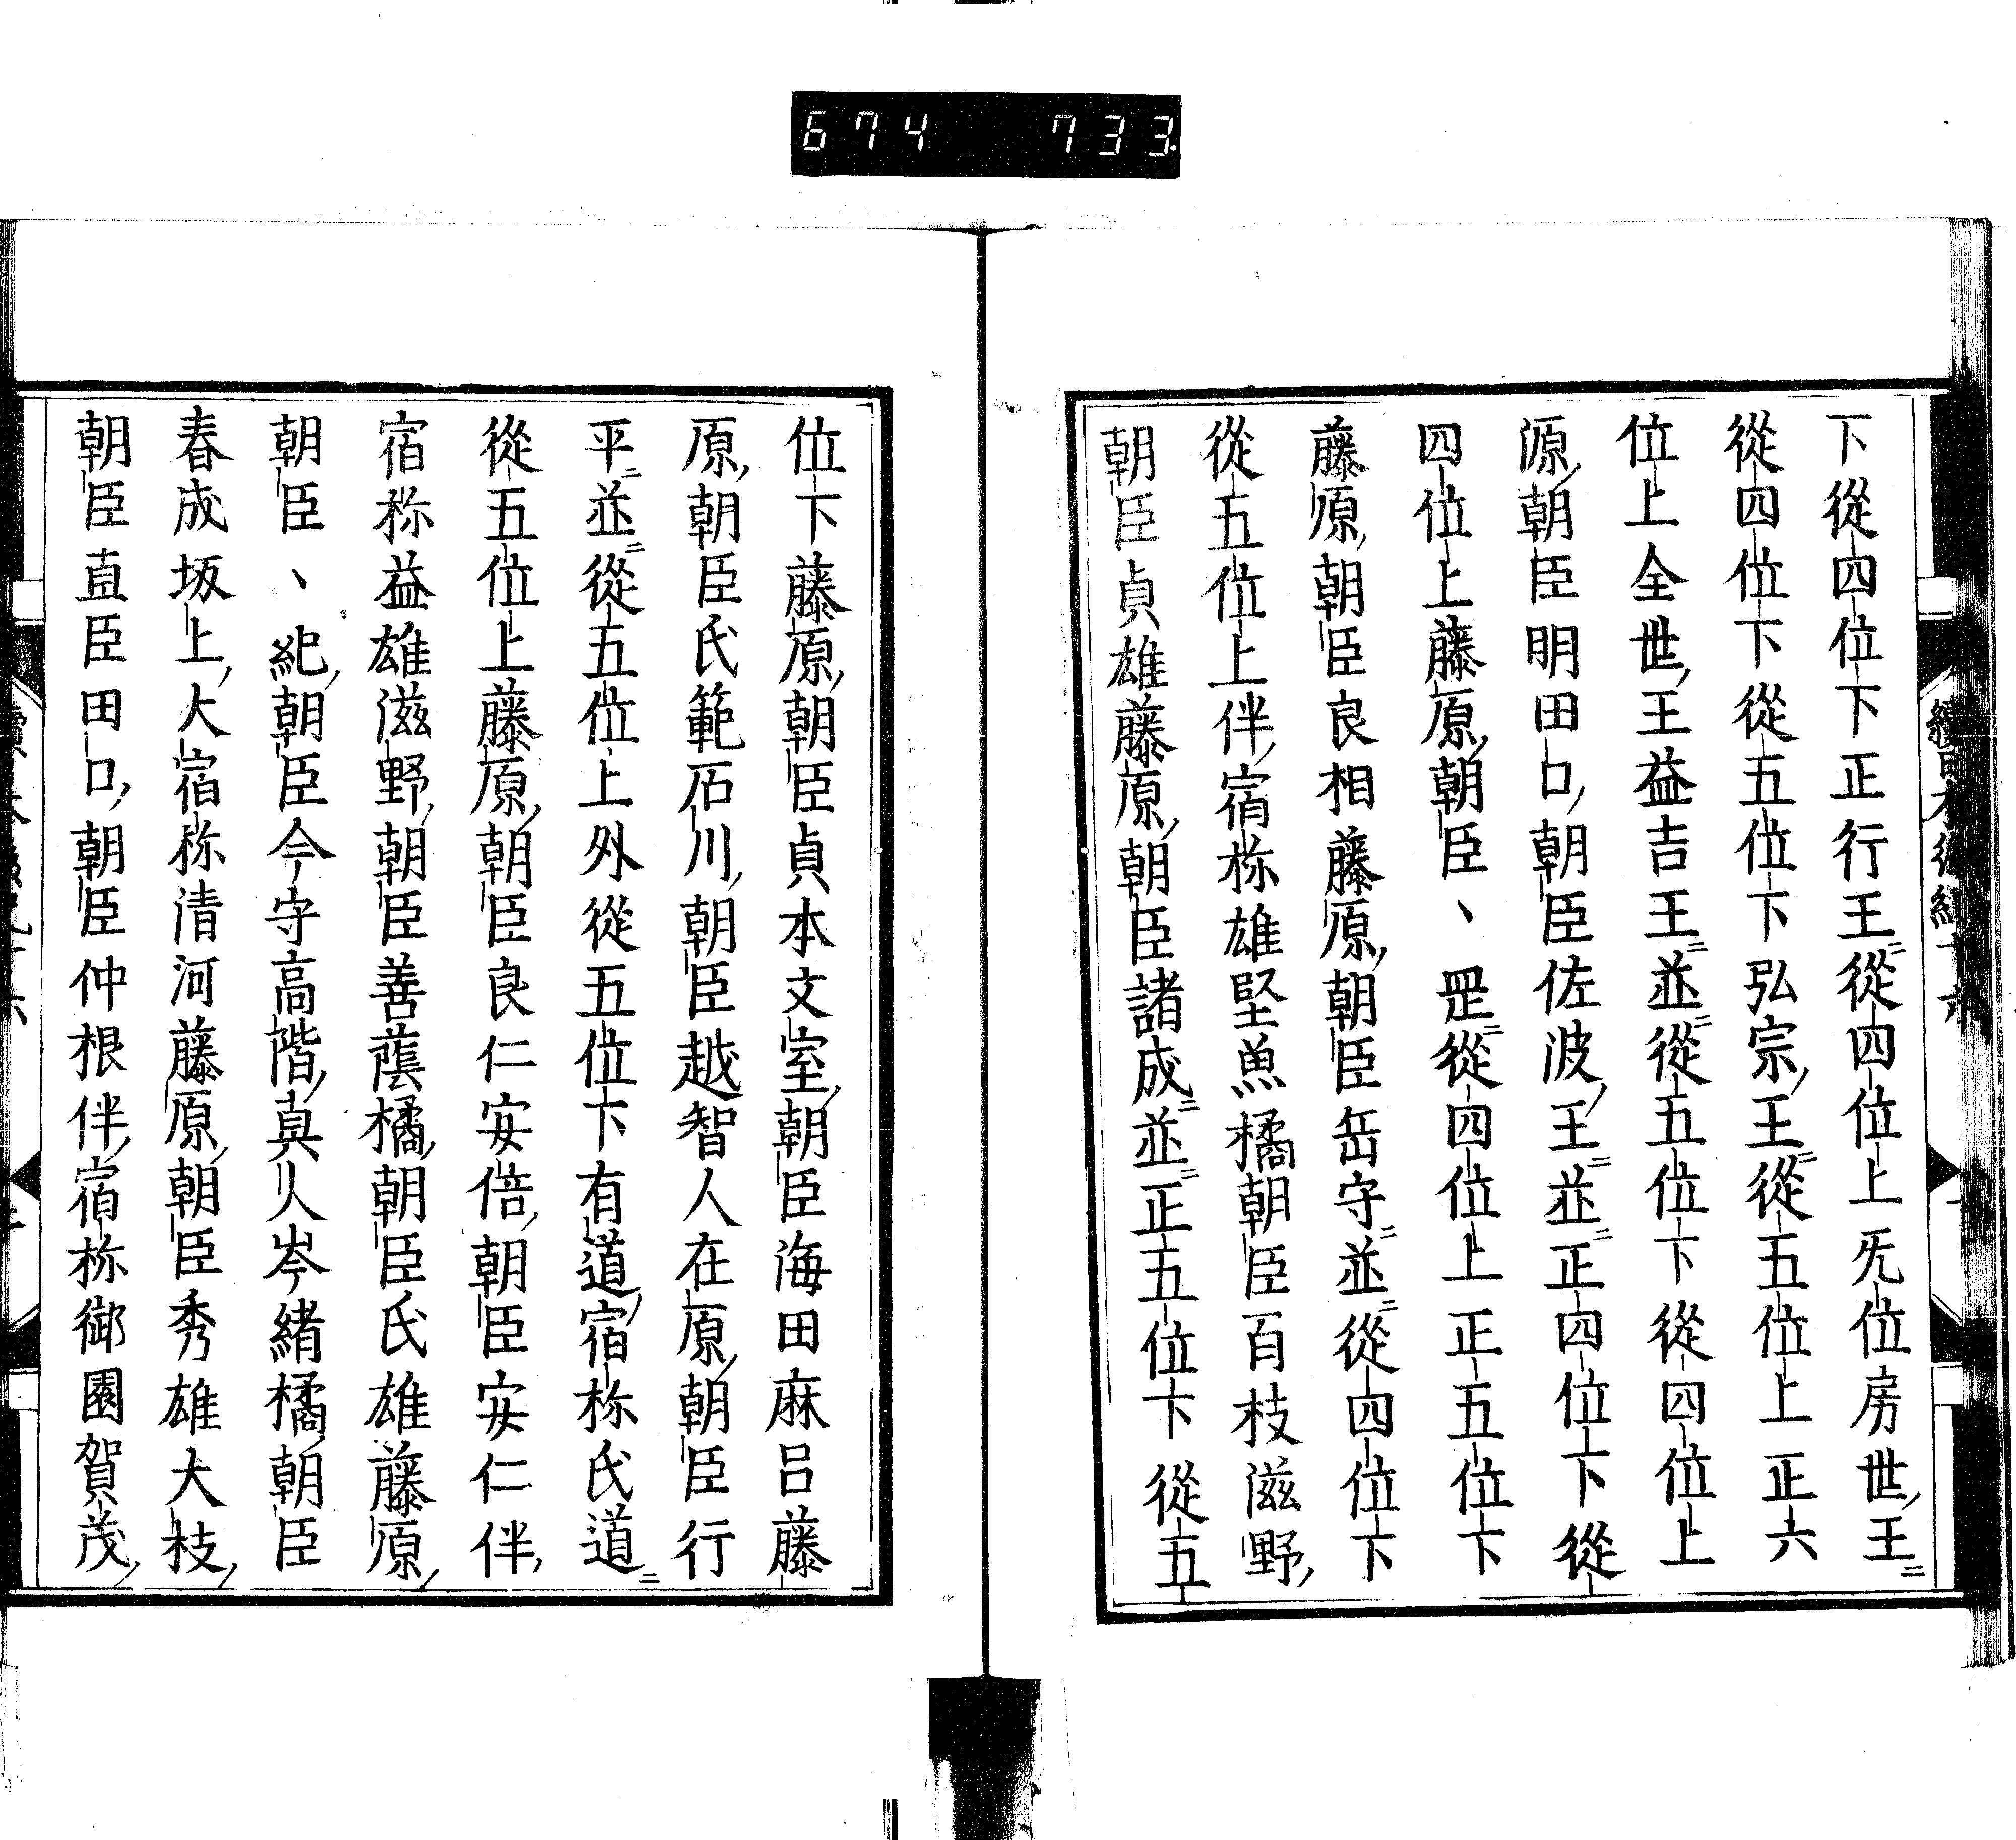 674 733
下從四位下正行王從四位上旡位房世王
從四位下從五位下弘宗王從五位上正六
位上全世王益吉王並從五位下從四位上
源朝臣明田口朝臣佐波王並正四位下從
四位上藤原朝臣、罡從四位上正五位下
藤原朝臣良相藤原朝臣岳守並從四位下
從五位上伴宿祢雄堅魚橘朝臣百枝滋野
朝臣貞雄藤原朝臣諸成並正五位下從五
位下藤原朝臣貞本文室朝臣海田麻呂藤
原朝臣氏範石川朝臣越智人在原朝臣行
平並從五位上外從五位下有道宿祢氏道
從五位上藤原朝臣良仁安倍朝臣安仁伴
宿祢益雄滋野朝臣善蔭橘朝臣氏雄藤原
朝臣、紀朝臣今守高階真人岑緒橘朝臣
春成坂上大宿祢清河藤原朝臣秀雄大枝
朝臣直臣田口朝臣仲根伴宿祢御園賀茂